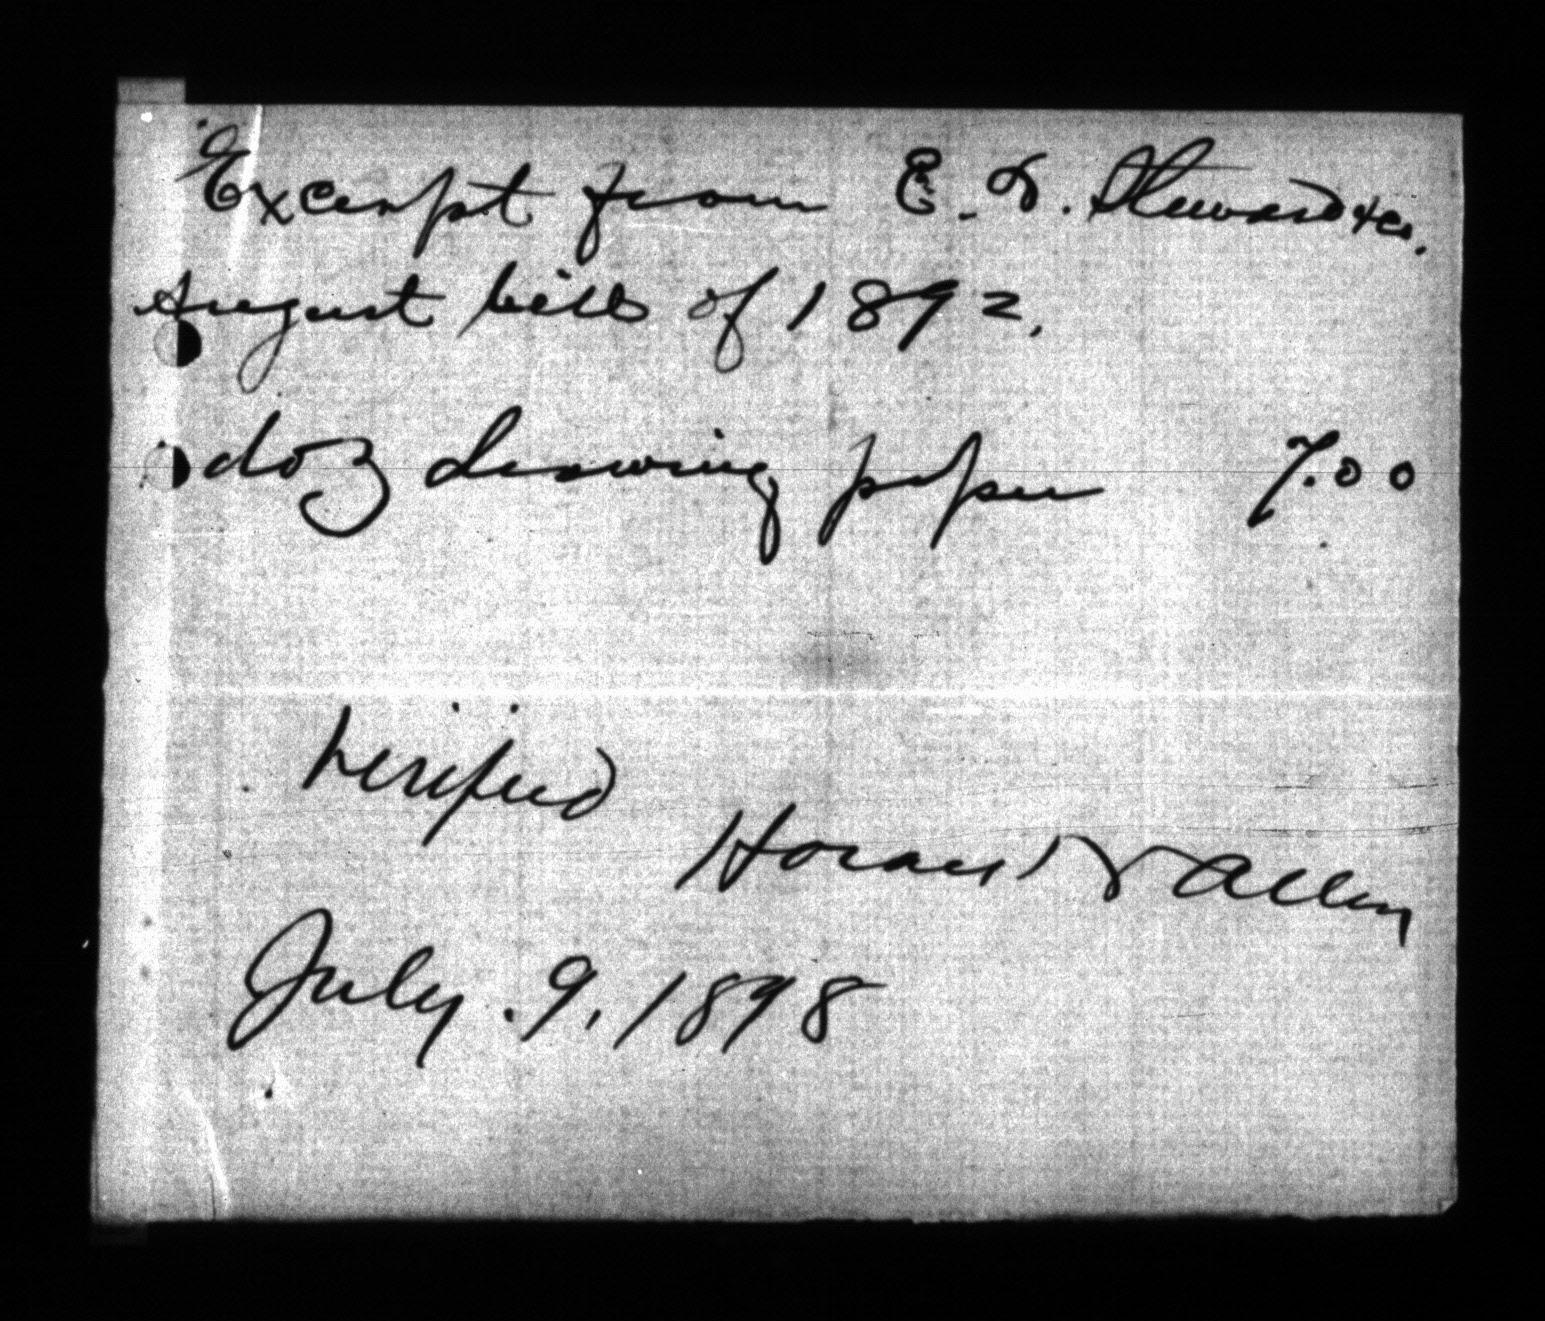 Excerpt from E. D. Steward & Co.
August bill of 1892.
doz drawing paper 7.00
Verified
Horace N Allen
July. 9, 1898